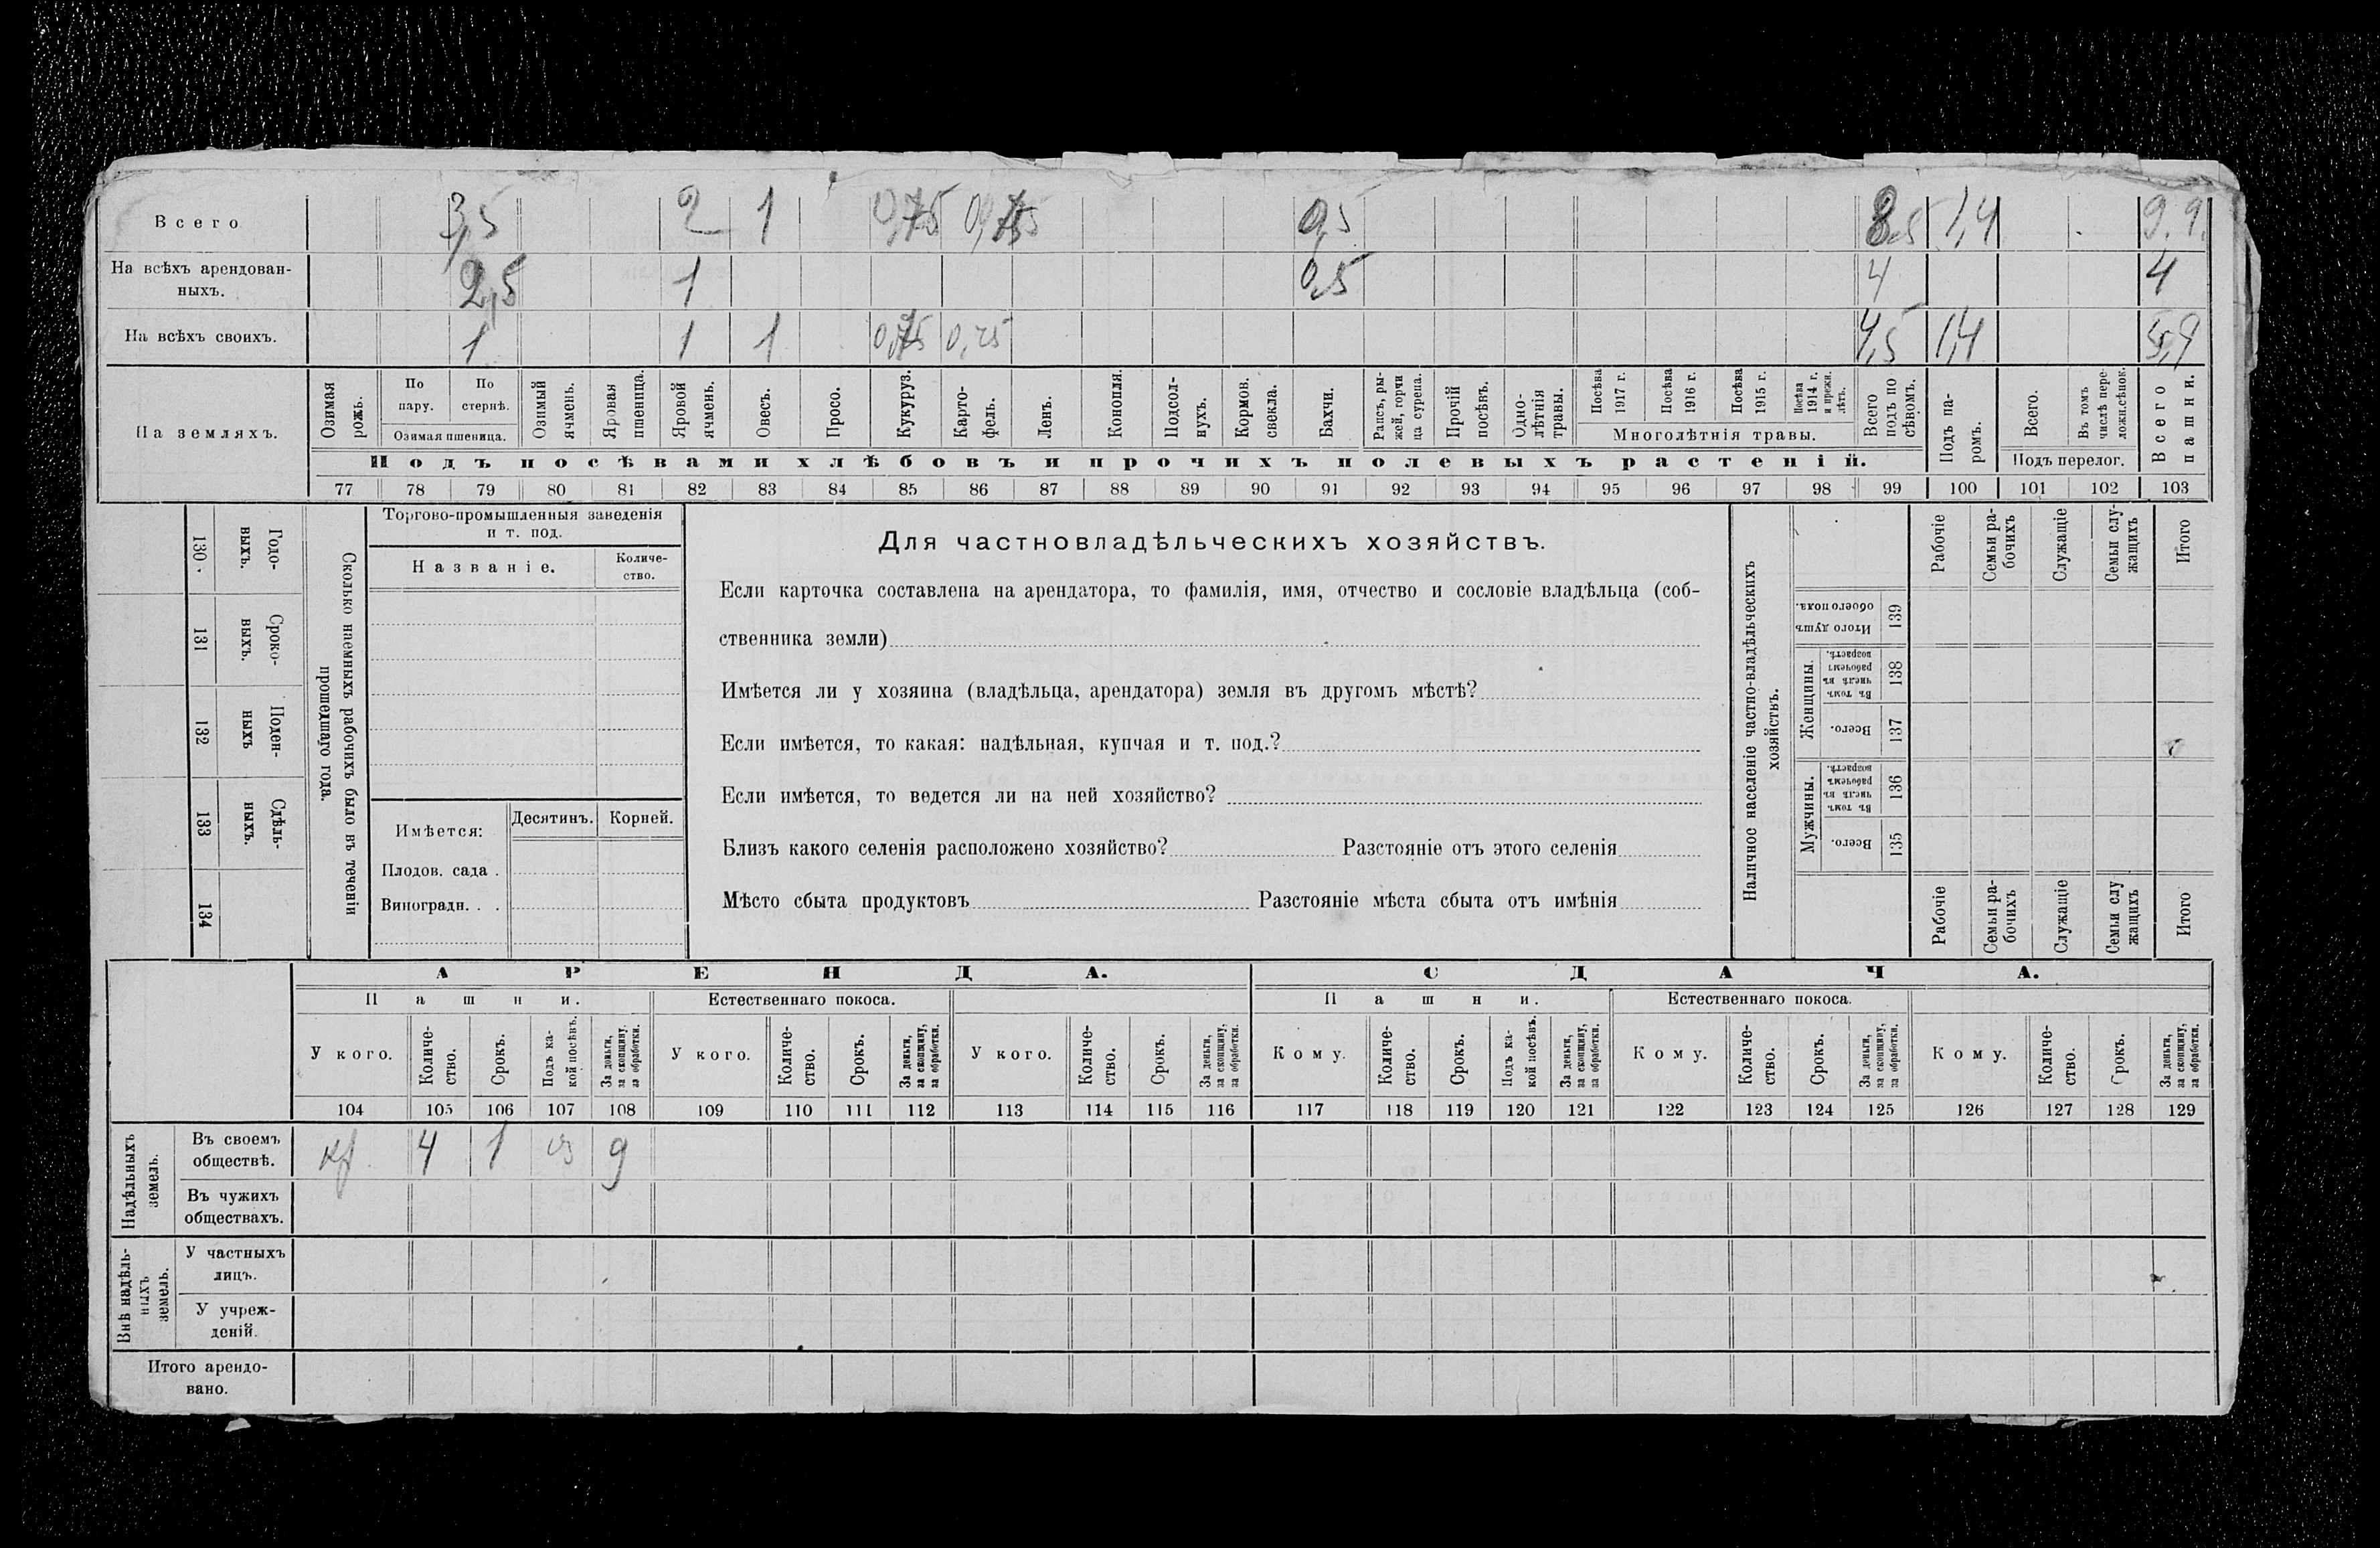 Всего 3,5 2 1 0,75 0,5 8.5 1,4 9.9.
На всѣхъ арендован-
ныхъ. 2,5 1 0,5 4 4
На всѣхъ своихъ. 1 1 1 0,25 4,5 1,4 5,9
На земляхъ.
Озимая рожь.
По пару.
По стернѣ.
Озимая пшеница.
Озимый ячмень.
Яровая пшеница.
Яровой ячмень.
Овесъ.
Просо.
Кукуруз.
Карто-
фель.
Ленъ.
Конопля.
Подсол-
нухъ.
Кормов. свекла.
Бахчи.
Рапсъ, ры-
жей, горчи
ца сурепа.
Прочій посѣвъ.
Одно-
лѣтнія
травы.
Посѣва 1917 г.
Посѣва 1916 г.
Посѣва 1915 г.
Посѣва 1914 г. и прежн. лѣтъ.
Многолѣтнія травы.
Всего подъ по
сѣвомъ.
Подъ па-
ромъ.
Всего.
Въ томъ числѣ пере-
ложн.сѣнок.
Подъ перелог.
Всего пашни.
Подъ посѣвами хлѣбовъ и прочихъ полевыхъ растеній.
77 78 79 80 81 82 83 84 85 86 87 88 89 90 91 92 93 94 95 96 97 98 99 100 101 102 103
Годо-
выхъ.
130
Сроко-
выхъ.
131
Поден-
ныхъ
132
Сдѣль-
ныхъ.
133
134
Сколько наемныхъ рабочихъ было въ теченіи
прошедшаго года.
Торгово-промышленныя заведенія
и т. под.
Названіе.
Количе-
ство.
Имѣется:
Десятинъ.
Корней.
Плодов. сада .
Виноградн. . .
Для частновладѣльческихъ хозяйствъ.
Если карточка составлена на арендатора, то фамилія, имя, отчество и сословіе владѣльца (соб-
ственника земли)
Имѣется ли у хозяина (владѣльца, арендатора) земля въ другомъ мѣстѣ?
Если имѣется, то какая: надѣльная, купчая и т. под.?
Если имѣется, то ведется ли на ней хозяйство?
Близъ какого селенія расположено хозяйство? Разстояніе отъ этого селенія
Мѣсто сбыта продуктовъ Разстояніе мѣста сбыта отъ имѣнія
Наличное населеніе частно-владѣльческихъ
хозяйствъ.
Рабочіе
Семьи ра-
бочихъ
Служащіе
Семьи слу-
жащихъ
Итого
Итого душъ
обоего пола.
139
Женщины.
Въ томъ
числѣ въ
рабочемъ
возрастѣ.
138
Всего.
137
Мужчины.
Въ томъ
числѣ въ
рабочемъ
возрастѣ.
136
Всего.
135
Рабочіе
Семьи ра-
бочихъ
Служащіе
Семьи слу
жащихъ
Итого
АРЕНДА. СДАЧА.
Пашни. Естественнаго покоса. Пашни. Естественнаго покоса.
У кого.
Количе-
ство.
Срокъ.
Подъ ка-
кой посѣвъ.
За деньги,
за скопщину,
за обработки.
У кого.
Количе-
ство.
Срокъ.
За деньги,
за скопщину,
за обработки.
У кого.
Количе-
ство.
Срокъ.
За деньги,
за скопщину,
за обработки.
Кому.
Количе-
ство.
Срокъ.
Подъ ка-
кой посѣвъ.
За деньги,
за скопщину,
за обработки.
Кому.
Количе-
ство.
Срокъ.
За деньги,
за скопщину,
за обработки.
Кому.
Количе-
ство.
Срокъ.
За деньги,
за скопщину,
за обработки.
104 105 106 107 108 109 110 111 112 113 114 115 116 117 118 119 120 121 122 123 124 125 126 127 128 129
Надѣльныхъ
земель.
Въ своемъ
обществѣ. 4 1 оз д
Въ чужихъ
обществахъ.
Внѣ надѣль-
ныхъ
земель.
У частныхъ
лицъ.
У учреж-
деній.
Итого арендо-
вано.